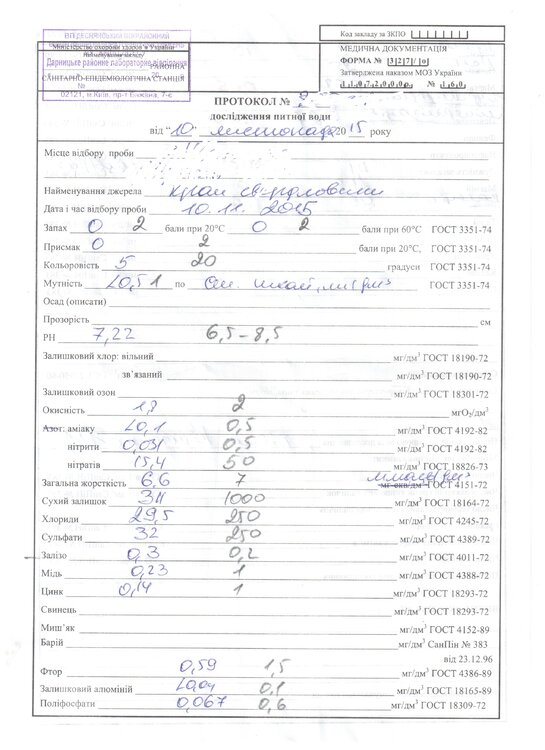 Код закладу за ЗКПО
Міністерство охорони здоров'я України
Найменування закладу
Дарницьке районне лабораторне відділення
РАЙОННА
САНІТАРНО-ЕПІДЕМІОЛОГІЧНА СТАНЦІЯ
№
02121, м.Київ, пр-т Бажана, 7-є
МЕДИЧНА ДОКУМЕНТАЦІЯ
ФОРМА № 327/о
Затверджена наказом МОЗ України
11.07.2000р. № 160
ПРОТОКОЛ №
дослідження питної води
від "10" листопада 2015 року
Місце відбору проби
Найменування джерела кран свердловини
Дата і час відбору проби 10.11.2015
Запах 0 2 бали при 20°С 0 2 бали при 60°С ГОСТ 3351-74
Присмак 0 2 бали при 20°С, ГОСТ 3351-74
Кольоровість 5 20 градуси ГОСТ 3351-74
Мутність <0,5 1 по ГОСТ 3351-74
Осад (описати)
Прозорість см
РН 7,22 6,5-8,5
Залишковий хлор: вільний мг/дм³ ГОСТ 18190-72
зв'язаний мг/дм³ ГОСТ 18190-72
Залишковий озон мг/дм³ ГОСТ 18301-72
Окисність 2 мгО₂/дм³
Азот: аміаку <0,1 0,5 мг/дм³ ГОСТ 4192-82
нітрити 0,031 0,5 мг/дм³ ГОСТ 4192-82
нітратів 15,4 50 мг/дм³ ГОСТ 18826-73
Загальна жорсткість 6,6 7 ммоль/дм³ мг-екв/дм³ ГОСТ 4151-72
Сухий залишок 311 1000 мг/дм³ ГОСТ 18164-72
Хлориди 29,5 250 мг/дм³ ГОСТ 4245-72
Сульфати 32 250 мг/дм³ ГОСТ 4389-72
Залізо 0,3 0,2 мг/дм³ ГОСТ 4011-72
Мідь 0,23 1 мг/дм³ ГОСТ 4388-72
Цинк 0,14 1 мг/дм³ ГОСТ 18293-72
Свинець мг/дм³ ГОСТ 18293-72
Миш'як мг/дм³ ГОСТ 4152-89
Барій мг/дм³ СанПін № 383
від 23.12.96
Фтор 0,59 1,5 мг/дм³ ГОСТ 4386-89
Залишковий алюміній <0,04 0,1 мг/дм³ ГОСТ 18165-89
Поліфосфати 0,067 0,6 мг/дм³ ГОСТ 18309-72